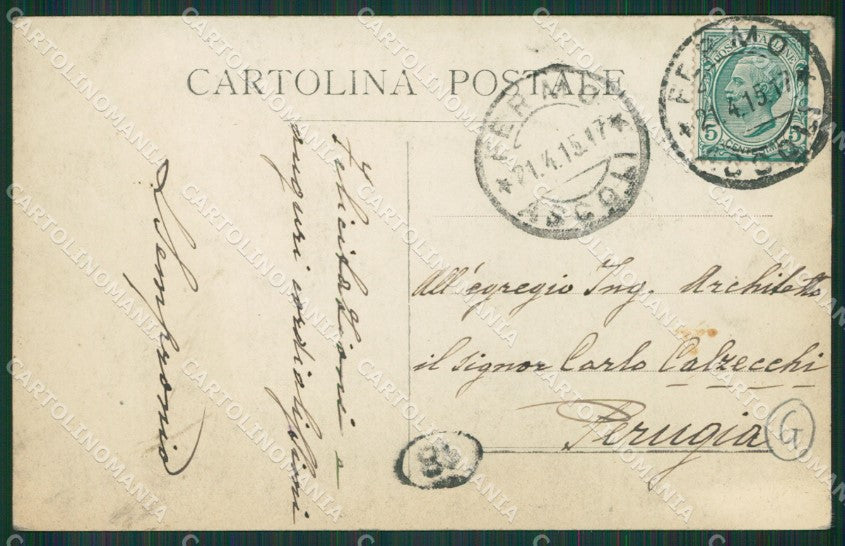 CARTOLINA POSTALE
FERMO
21.4.15.17
ASCOLI
FERMO
21.4.15.17
ASCOLI
POSTE ITALIANE
5 CENTESIMI 5
Felicitazioni e
auguri cordialissimi
Sempronio
All'egregio Ing. Architetto
il signor Carlo Calzecchi
Perugia
G
CARTOLINOMANIA